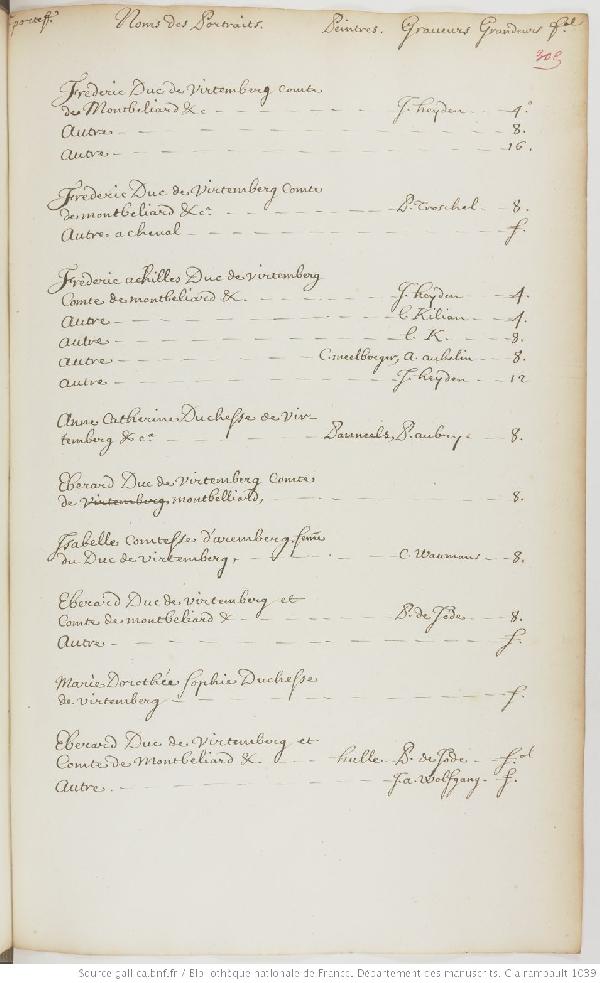 Noms des Portraits. Peintres. Graveurs Grandeurs
Frederic Duc de Virtemberg comte
de Montbeliard &c J. heyden 4.°
Autre 8.
Autre 16.
Frederic Duc de Virtemberg Comte
de montbeliard &c. P. Troschel 8.
Autre a cheval f.
Frederic achilles Duc de virtemberg
Comte de montbeliard &c. J. heyden 4.
Autre L. Kilian 4.
Autre L. K. 8.
Autre A. aubelin 8.
Autre J. heyden 12
Anne Catherine Duchesse de Vir-
temberg &c.ª P. aubry 8.
Eberard Duc de Virtemberg Comte
de Virtemberg, montbelliard, 8.
Isabelle Comtesse d'aremberg, femme
du Duc de virtemberg, C. Waumans 8.
Eberard Duc de virtemberg et
Comte de montbeliard & P. de Jode 8.
Autre f.
Marie Dorothée sophie Duchesse
de virtemberg f.
Eberard Duc de Virtemberg et
Comte de Montbeliard &c. hulle P. de Jode f.
Autre. J. a. Wolfgang f.
Source gallica.bnf.fr / Bibliothèque nationale de France. Département des manuscrits. Clairambault 1039